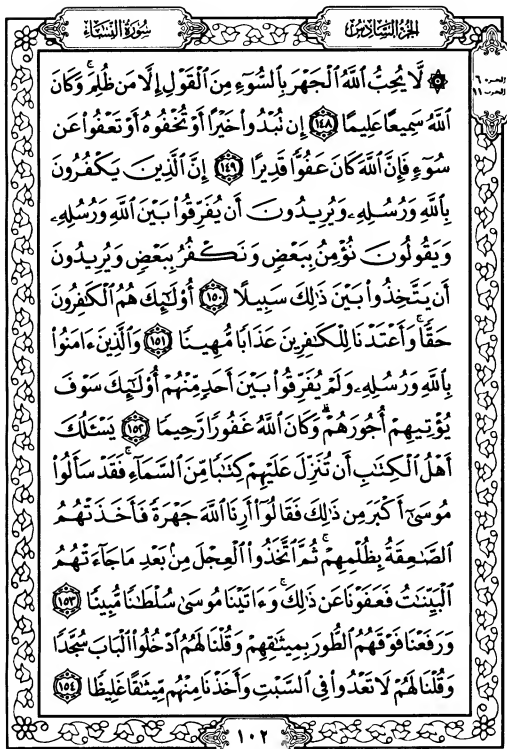 سُورَةُ النِّسَاءِ
الجُزْءُ السَّادِسُ
۞ لَّا يُحِبُّ ٱللَّهُ ٱلْجَهْرَ بِٱلسُّوٓءِ مِنَ ٱلْقَوْلِ إِلَّا مَن ظُلِمَۚ وَكَانَ
ٱللَّهُ سَمِيعًا عَلِيمًا ١٤٨ إِن تُبْدُوا۟ خَيْرًا أَوْ تُخْفُوهُ أَوْ تَعْفُوا۟ عَن
سُوٓءٍ فَإِنَّ ٱللَّهَ كَانَ عَفُوًّا قَدِيرًا ١٤٩ إِنَّ ٱلَّذِينَ يَكْفُرُونَ
بِٱللَّهِ وَرُسُلِهِۦ وَيُرِيدُونَ أَن يُفَرِّقُوا۟ بَيْنَ ٱللَّهِ وَرُسُلِهِۦ
وَيَقُولُونَ نُؤْمِنُ بِبَعْضٍ وَنَكْفُرُ بِبَعْضٍ وَيُرِيدُونَ
أَن يَتَّخِذُوا۟ بَيْنَ ذَٰلِكَ سَبِيلًا ١٥٠ أُو۟لَـٰٓئِكَ هُمُ ٱلْكَـٰفِرُونَ
حَقًّاۚ وَأَعْتَدْنَا لِلْكَـٰفِرِينَ عَذَابًا مُّهِينًا ١٥١ وَٱلَّذِينَ ءَامَنُوا۟
بِٱللَّهِ وَرُسُلِهِۦ وَلَمْ يُفَرِّقُوا۟ بَيْنَ أَحَدٍ مِّنْهُمْ أُو۟لَـٰٓئِكَ سَوْفَ
يُؤْتِيهِمْ أُجُورَهُمْۗ وَكَانَ ٱللَّهُ غَفُورًا رَّحِيمًا ١٥٢ يَسْـَٔلُكَ
أَهْلُ ٱلْكِتَـٰبِ أَن تُنَزِّلَ عَلَيْهِمْ كِتَـٰبًا مِّنَ ٱلسَّمَآءِۚ فَقَدْ سَأَلُوا۟
مُوسَىٰٓ أَكْبَرَ مِن ذَٰلِكَ فَقَالُوٓا۟ أَرِنَا ٱللَّهَ جَهْرَةً فَأَخَذَتْهُمُ
ٱلصَّـٰعِقَةُ بِظُلْمِهِمْۚ ثُمَّ ٱتَّخَذُوا۟ ٱلْعِجْلَ مِنۢ بَعْدِ مَا جَآءَتْهُمُ
ٱلْبَيِّنَـٰتُ فَعَفَوْنَا عَن ذَٰلِكَۚ وَءَاتَيْنَا مُوسَىٰ سُلْطَـٰنًا مُّبِينًا ١٥٣
وَرَفَعْنَا فَوْقَهُمُ ٱلطُّورَ بِمِيثَـٰقِهِمْ وَقُلْنَا لَهُمُ ٱدْخُلُوا۟ ٱلْبَابَ سُجَّدًا
وَقُلْنَا لَهُمْ لَا تَعْدُوا۟ فِى ٱلسَّبْتِ وَأَخَذْنَا مِنْهُم مِّيثَـٰقًا غَلِيظًا ١٥٤
الجزء ٦
الحزب ١١
١٠٢